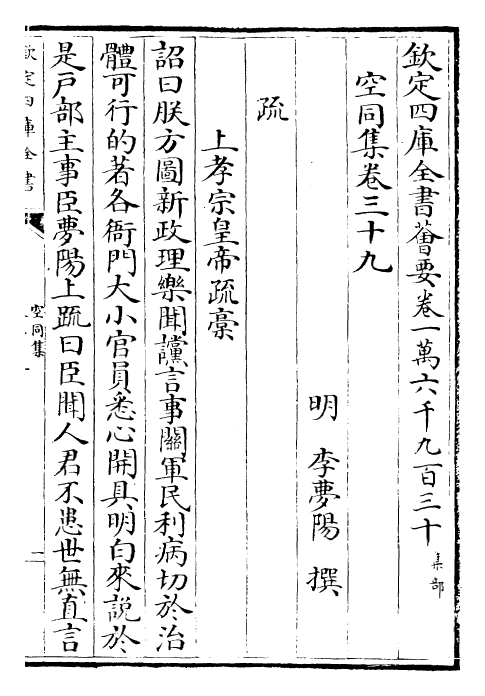 欽定四庫全書薈要卷一萬六千九百三十
集部
空同集卷三十九
明 李夢陽 撰
疏
上孝宗皇帝疏稾
詔曰朕方圖新政理樂聞讜言事關軍民利病切於治
體可行的著各衙門大小官員悉心開具明白來說於
是戸部主事臣夢陽上疏曰臣聞人君不患世無直言
欽定四庫全書
空同集